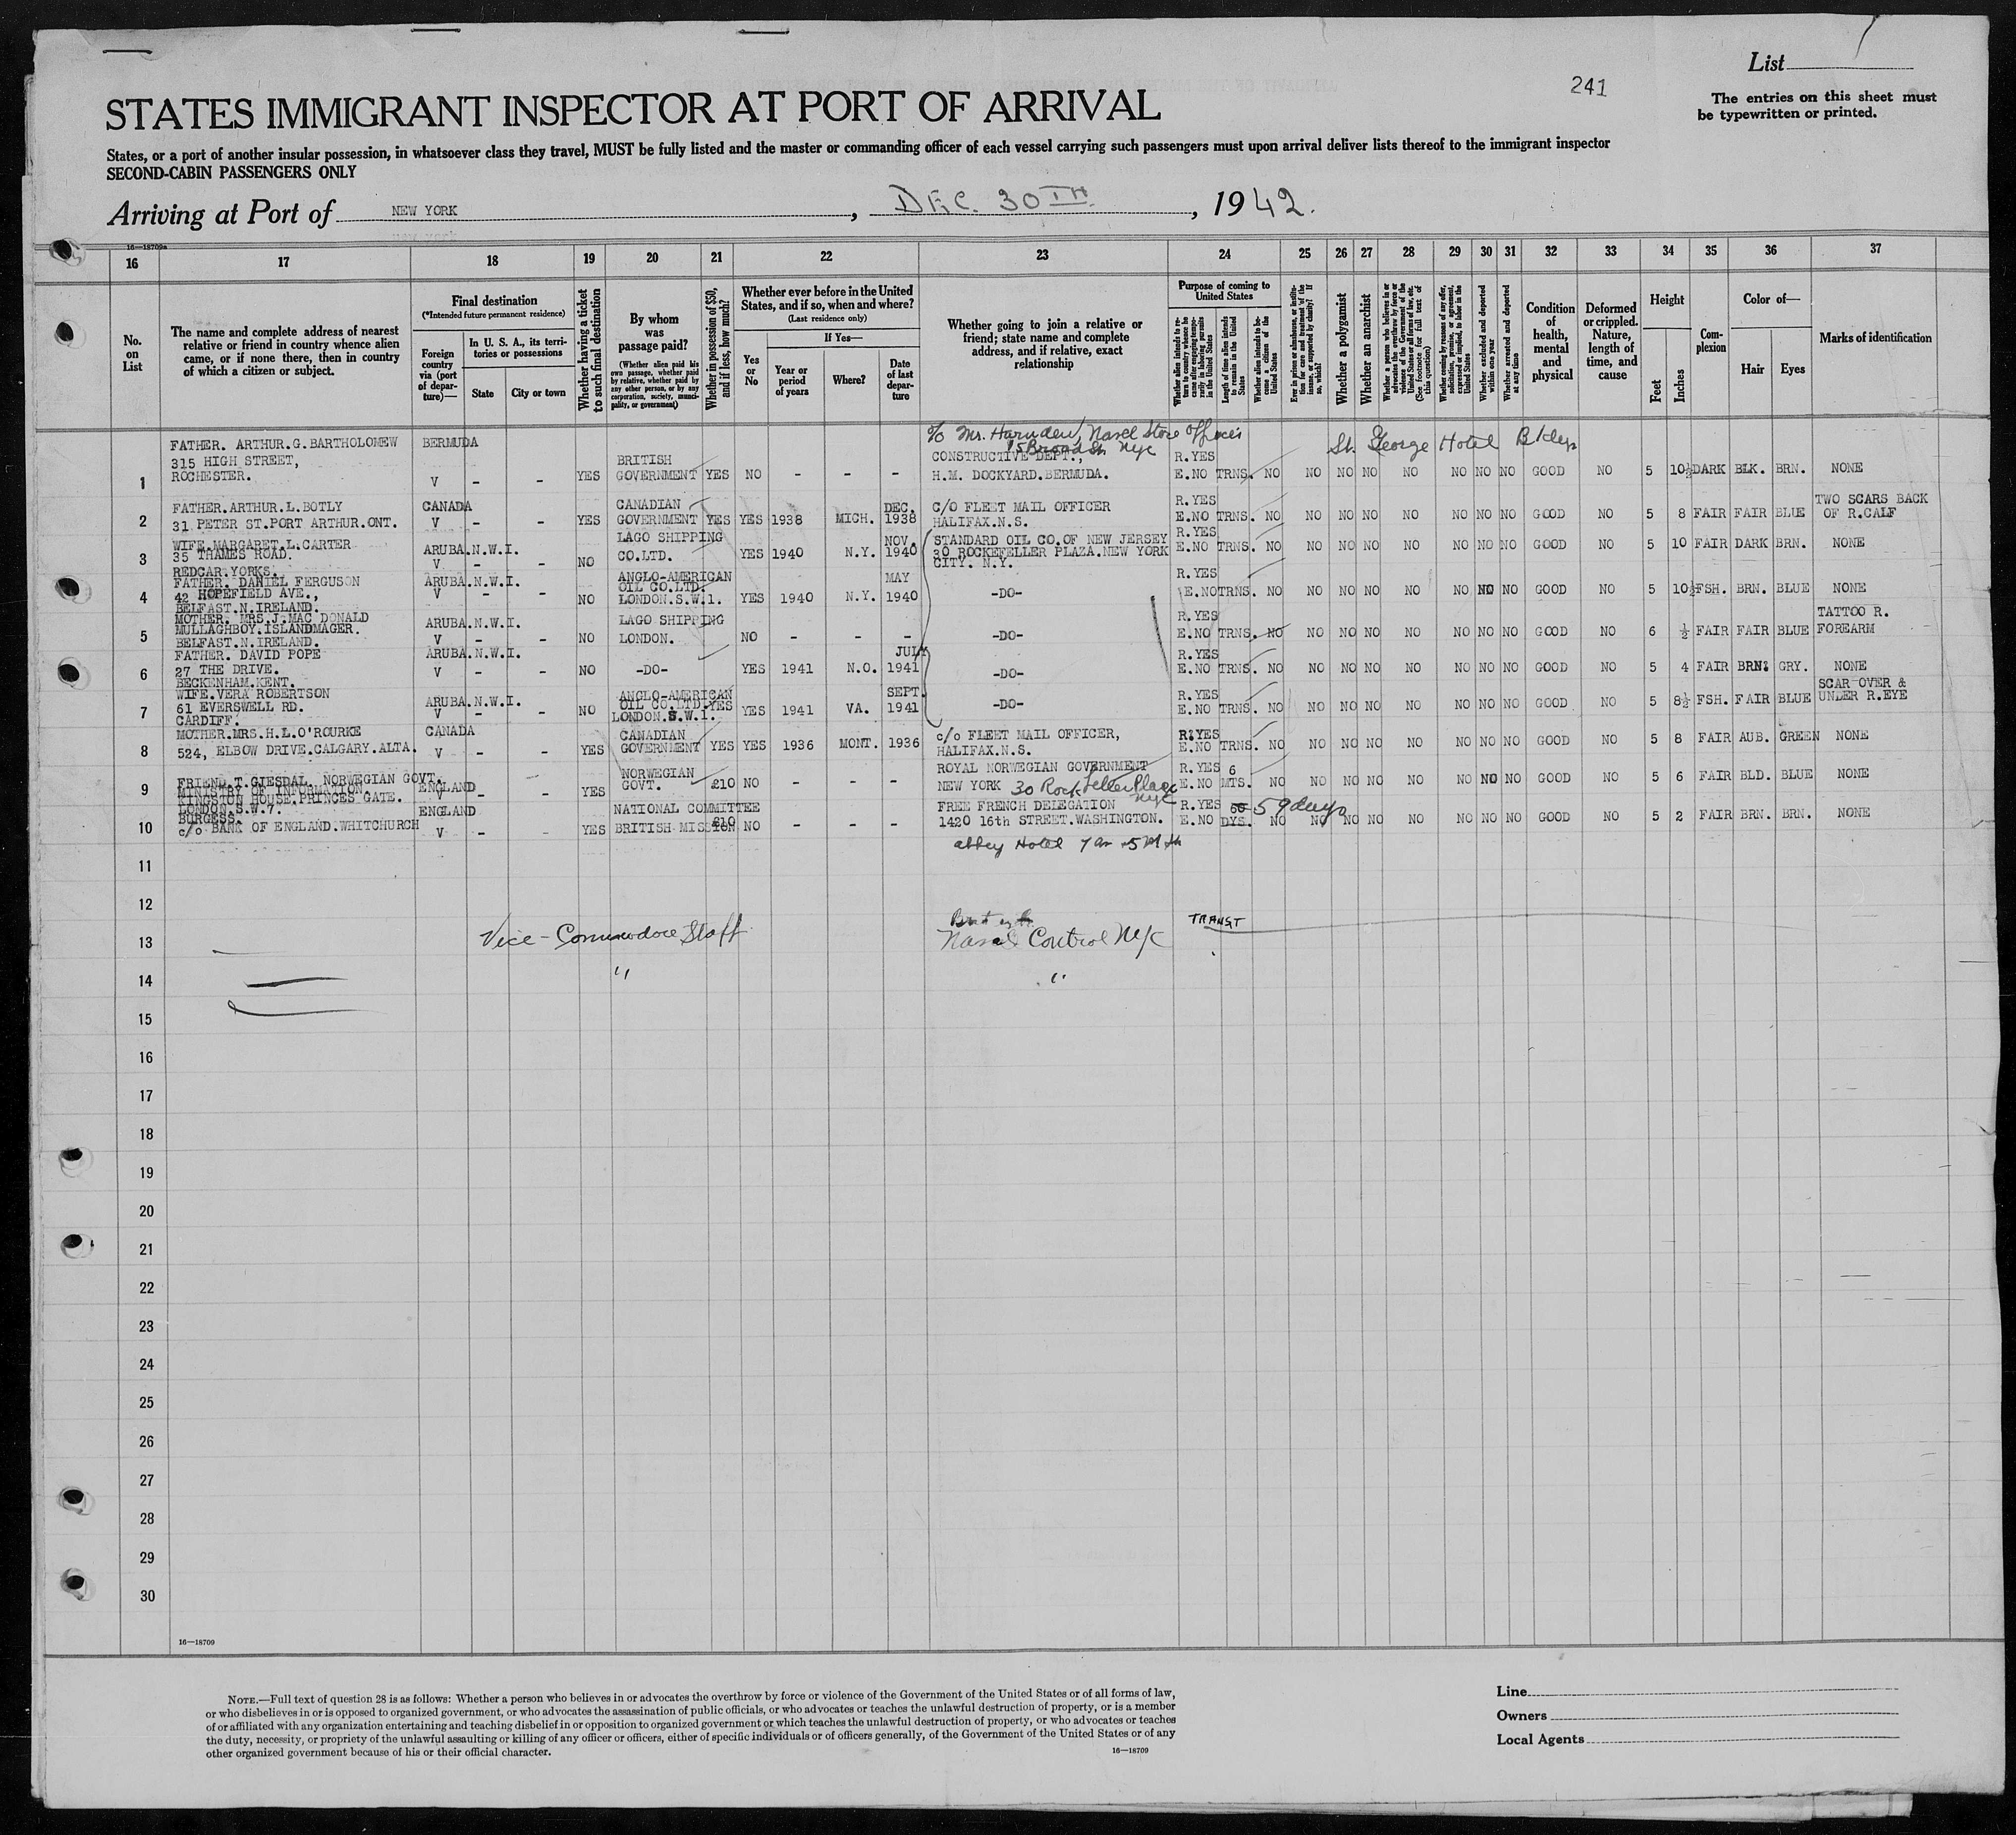 List
241
The entries on this sheet must
be typewritten or printed.
STATES IMMIGRANT INSPECTOR AT PORT OF ARRIVAL
States, or a port of another insular possession, in whatsoever class they travel, MUST be fully listed and the master or commanding officer of each vessel carrying such passengers must upon arrival deliver lists thereof to the immigrant inspector
SECOND-CABIN PASSENGERS ONLY
Arriving at Port of NEW YORK, DEC. 30TH, 1942.
16—18709a
16 17 18 19 20 21 22 23 24 25 26 27 28 29 30 31 32 33 34 35 36 37
No. on List
The name and complete address of nearest relative or friend in country whence alien came, or if none there, then in country of which a citizen or subject.
Final destination
(*Intended future permanent residence)
Foreign country via (port of departure)—
In U. S. A., its territories or possessions
State
City or town
Whether having a ticket to such final destination
By whom was passage paid?
(Whether alien paid his own passage, whether paid by relative, whether paid by any other person, or by any corporation, society, municipality, or government)
Whether in possession of $50, and if less, how much?
Whether ever before in the United States, and if so, when and where?
(Last residence only)
Yes or No
If Yes—
Year or period of years
Where?
Date of last departure
Whether going to join a relative or friend; state name and complete address, and if relative, exact relationship
Purpose of coming to United States
Whether alien intends to return to country whence he came after engaging temporarily in laboring pursuits in the United States
Length of time alien intends to remain in the United States
Whether alien intends to become a citizen of the United States
Ever in prison or almshouse, or institution for care and treatment of the insane, or supported by charity? If so, which?
Whether a polygamist
Whether an anarchist
Whether a person who believes in or advocates the overthrow by force or violence of the Government of the United States or all forms of law, etc. (See footnote for full text of this question)
Whether coming by reason of any offer, solicitation, promise, or agreement, expressed or implied, to labor in the United States
Whether excluded and deported within one year
Whether arrested and deported at any time
Condition of health, mental and physical
Deformed or crippled. Nature, length of time, and cause
Height
Feet
Inches
Complexion
Color of—
Hair
Eyes
Marks of identification
c/o Mr. Harnden, Naval Store Officer
15 Broad St NYC
St. George Hotel Bklyn
1 FATHER. ARTHUR.G.BARTHOLOMEW 315 HIGH STREET, ROCHESTER. BERMUDA V - - YES BRITISH GOVERNMENT YES NO - - - CONSTRUCTIVE DEPT., H.M. DOCKYARD.BERMUDA. R.YES E.NO TRNS. NO NO NO NO NO NO NO NO GOOD NO 5 10½ DARK BLK. BRN. NONE
2 FATHER.ARTHUR.L.BOTLY 31 PETER ST.PORT ARTHUR.ONT. CANADA V - - YES CANADIAN GOVERNMENT YES YES 1938 MICH. DEC. 1938 C/O FLEET MAIL OFFICER HALIFAX.N.S. R.YES E.NO TRNS. NO NO NO NO NO NO NO NO GOOD NO 5 8 FAIR FAIR BLUE TWO SCARS BACK OF R.CALF
3 WIFE.MARGARET.L.CARTER 35 THAMES ROAD. REDCAR.YORKS. ARUBA.N.W.I. V - - NO LAGO SHIPPING CO.LTD. YES 1940 N.Y. NOV. 1940 STANDARD OIL CO.OF NEW JERSEY 30 ROCKEFELLER PLAZA.NEW YORK CITY. N.Y. R.YES E.NO TRNS. NO NO NO NO NO NO NO NO GOOD NO 5 10 FAIR DARK BRN. NONE
4 FATHER. DANIEL FERGUSON 42 HOPEFIELD AVE., BELFAST.N.IRELAND. ARUBA.N.W.I. V - - NO ANGLO-AMERICAN OIL CO.LTD. LONDON.S.W.1. YES 1940 N.Y. MAY 1940 -DO- R.YES E.NO TRNS. NO NO NO NO NO NO NO NO GOOD NO 5 10½ FSH. BRN. BLUE NONE
5 MOTHER. MRS.J.MAC DONALD MULLAGHBOY.ISLANDMAGER. BELFAST.N.IRELAND. ARUBA.N.W.I. V - - NO LAGO SHIPPING LONDON. NO - - - -DO- R.YES E.NO TRNS. NO NO NO NO NO NO NO NO GOOD NO 6 ½ FAIR FAIR BLUE TATTOO R. FOREARM
6 FATHER. DAVID POPE 27 THE DRIVE. BECKENHAM.KENT. ARUBA.N.W.I. V - - NO -DO- YES 1941 N.O. JULY 1941 -DO- R.YES E.NO TRNS. NO NO NO NO NO NO NO NO GOOD NO 5 4 FAIR BRN. GRY. NONE
7 WIFE.VERA ROBERTSON 61 EVERSWELL RD. CARDIFF. ARUBA.N.W.I. V - - NO ANGLO-AMERICAN OIL CO.LTD. LONDON.S.W.1. YES YES 1941 VA. SEPT. 1941 -DO- R.YES E.NO TRNS. NO NO NO NO NO NO NO NO GOOD NO 5 8½ FSH. FAIR BLUE SCAR OVER & UNDER R.EYE
8 MOTHER.MRS.H.L.O'ROURKE 524, ELBOW DRIVE.CALGARY.ALTA. CANADA V - - YES CANADIAN GOVERNMENT YES YES 1936 MONT. 1936 c/o FLEET MAIL OFFICER, HALIFAX.N.S. R.YES E.NO TRNS. NO NO NO NO NO NO NO NO GOOD NO 5 8 FAIR AUB. GREEN NONE
9 FRIEND.T.GJESDAL. NORWEGIAN GOVT. MINISTRY OF INFORMATION KINGSTON HOUSE.PRINCES GATE. LONDON.S.W.7. ENGLAND V - - YES NORWEGIAN GOVT. £10 NO - - - ROYAL NORWEGIAN GOVERNMENT NEW YORK 30 Rockfeller Plaza NYC R.YES E.NO 6 MTS. NO NO NO NO NO NO NO NO GOOD NO 5 6 FAIR BLD. BLUE NONE
10 BURGESS. c/o BANK OF ENGLAND.WHITCHURCH ENGLAND V - - YES NATIONAL COMMITTEE BRITISH MISSION £10 NO - - - FREE FRENCH DELEGATION 1420 16th STREET.WASHINGTON. R.YES E.NO 60 DYS. 59 days NO NO NO NO NO NO NO NO GOOD NO 5 2 FAIR BRN. BRN. NONE
Abbey Hotel 7 av 51 st
11
12
13 Vice-Commodore Staff British Naval Control NYC TRANST
14 " "
15
16
17
18
19
20
21
22
23
24
25
26
27
28
29
30
16—18709
NOTE.—Full text of question 28 is as follows: Whether a person who believes in or advocates the overthrow by force or violence of the Government of the United States or of all forms of law,
or who disbelieves in or is opposed to organized government, or who advocates the assassination of public officials, or who advocates or teaches the unlawful destruction of property, or is a member
of or affiliated with any organization entertaining and teaching disbelief in or opposition to organized government or which teaches the unlawful destruction of property, or who advocates or teaches
the duty, necessity, or propriety of the unlawful assaulting or killing of any officer or officers, either of specific individuals or of officers generally, of the Government of the United States or of any
other organized government because of his or their official character.
16—18709
Line
Owners
Local Agents